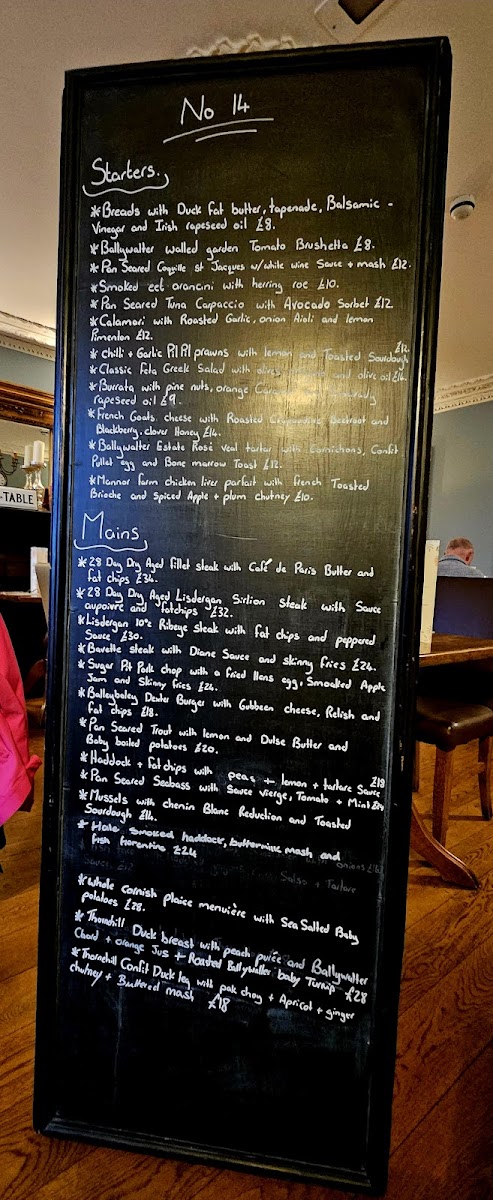 No 14
Starters.
*Breads with Duck fat butter, tapenade, Balsamic -
Vinegar and Irish rapeseed oil £8.
*Ballywalter walled garden Tomato Brushetta £8.
*Pan Seared Coquille st Jacques w/white wine Sauce + mash £12.
*Smoked eel arancini with herring roe £10.
*Pan Seared Tuna Carpaccio with Avocado Sorbet £12.
*Calamari with Roasted Garlic, onion Aioli and lemon
Pimenton £12.
*chilli + Garlic Pil Pil prawns with lemon and Toasted Sourdough £12.
*Classic Feta Greek Salad with olives and olive oil
*Burrata with pine nuts, orange
rapeseed oil £9.
*French Goats cheese with Roasted Beetroot and
Blackberry, clover Honey £14.
*Ballywalter Estate Rosé veal tartar with Cornichons, Confit
Pullet egg and Bone marrow Toast £12.
*Mannor farm chicken liver parfait with French Toasted
Brioche and Spiced Apple + plum chutney £10.
-TABLE
Mains
*28 Day Dry Aged fillet steak with Café de Paris Butter and
fat chips £34.
*28 Day Dry Aged Lisdergan Sirlion steak with Sauce
aupoivre and fatchips £32.
*Lisdergan 10oz Ribeye steak with fat chips and peppered
Sauce £30.
*Bavette steak with Diane Sauce and skinny fries £24.
*Sugar Pit Pork chop with a fried Hens egg, Smoaked Apple
Jam and Skinny fries £24.
*Balleyboley Dexter Burger with Gubbeen cheese, Relish and
fat chips £18.
*Pan Seared Trout with lemon and Dulse Butter and
Baby boiled potatoes £20.
*Haddock + fat chips with peas + lemon + tartare Sauce £18
*Pan Seared Seabass with Sauce vierge, Tomato + Mint £24
*Mussels with chenin Blanc Reduction and Toasted
Sourdough £14.
*Hake smoked haddock, buttermilk mash and
fish florentine £24
*Whole Cornish plaice menuière with Sea Salted Baby
potatoes £28.
*Thornhill Duck breast with peach puree and Ballywalter
Chard + orange Jus + Roasted Ballywalter baby Turnip £28
*Thornehill Confit Duck leg with pak choy + Apricot + ginger
chutney + Buttered mash £18